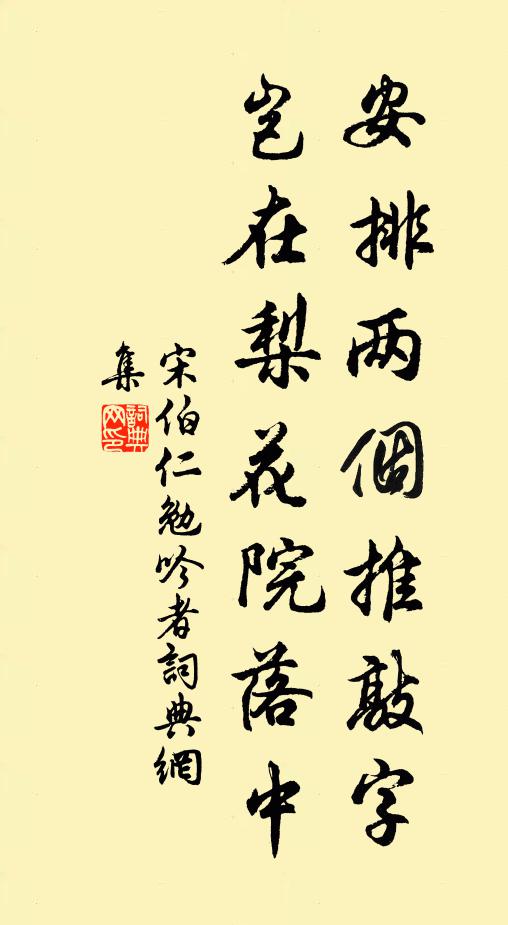 安排两個推敲字
豈在梨花院落中
宋伯仁勉吟者詞典網
集
詞典網印